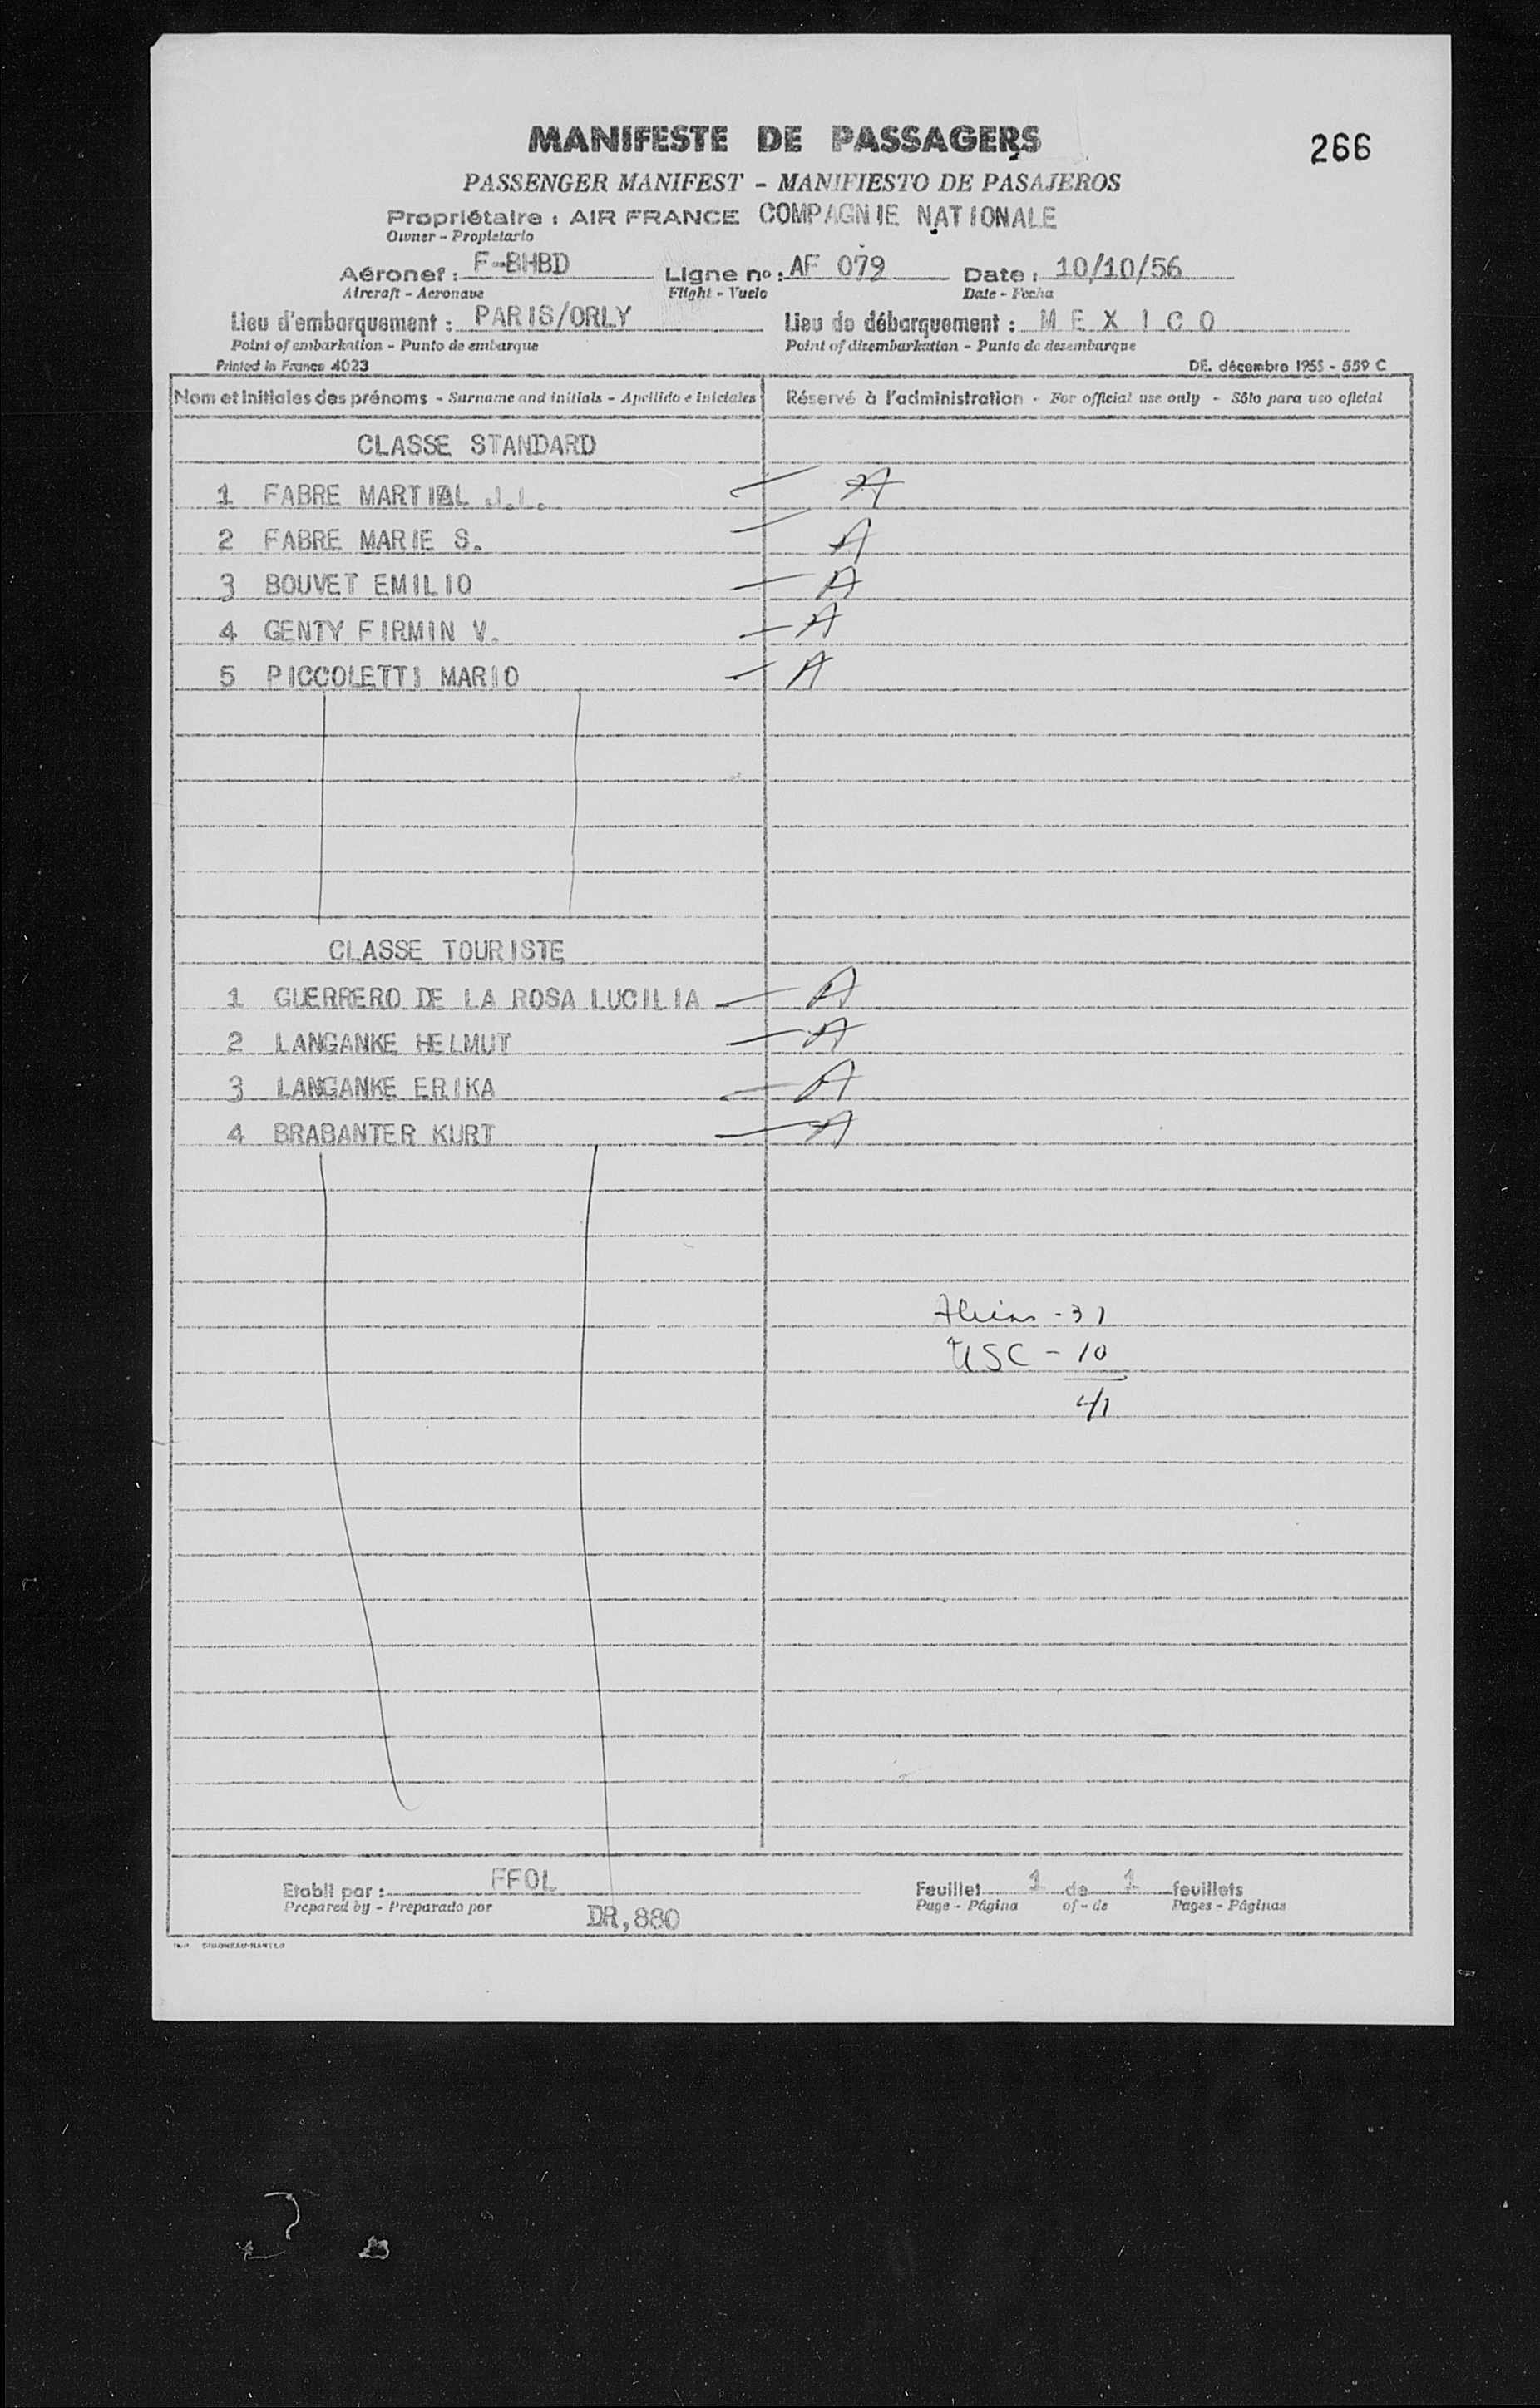 MANIFESTE DE PASSAGERS
266
PASSENGER MANIFEST - MANIFIESTO DE PASAJEROS
Propriétaire : AIR FRANCE COMPAGNIE NATIONALE
Owner - Propietario
Aéronef : F-BHBD Ligne no : AF 079 Date : 10/10/56
Aircraft - Aeronave Flight - Vuelo Date - Fecha
Lieu d'embarquement : PARIS/ORLY Lieu de débarquement : M E X I C O
Point of embarkation - Punto de embarque Point of disembarkation - Punto de desembarque
Printed in France 4023 DE. décembre 1955 - 559 C
Nom et initiales des prénoms - Surname and initials - Apellido e iniciales Réservé à l'administration - For official use only - Sólo para uso oficial
CLASSE STANDARD
1 FABRE MARTIAL J.L. A
2 FABRE MARIE S. A
3 BOUVET EMILIO A
4 GENTY FIRMIN V. A
5 PICCOLETTI MARIO A
CLASSE TOURISTE
1 GUERRERO DE LA ROSA LUCILIA A
2 LANGANKE HELMUT A
3 LANGANKE ERIKA A
4 BRABANTER KURT A
Aliens - 31
USC - 10
41
Etabli par : FFOL Feuillet 1 de 1 feuillets
Prepared by - Preparado por Page - Página of - de Pages - Páginas
DR,880